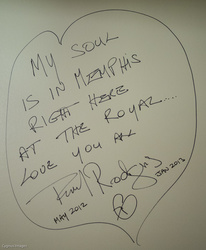 MY SOUL
IS IN MEMPHIS
RIGHT HERE
AT THE ROYAL....
LOVE YOU ALL
Paul Rodgers
JAN 2013
MAY 2012